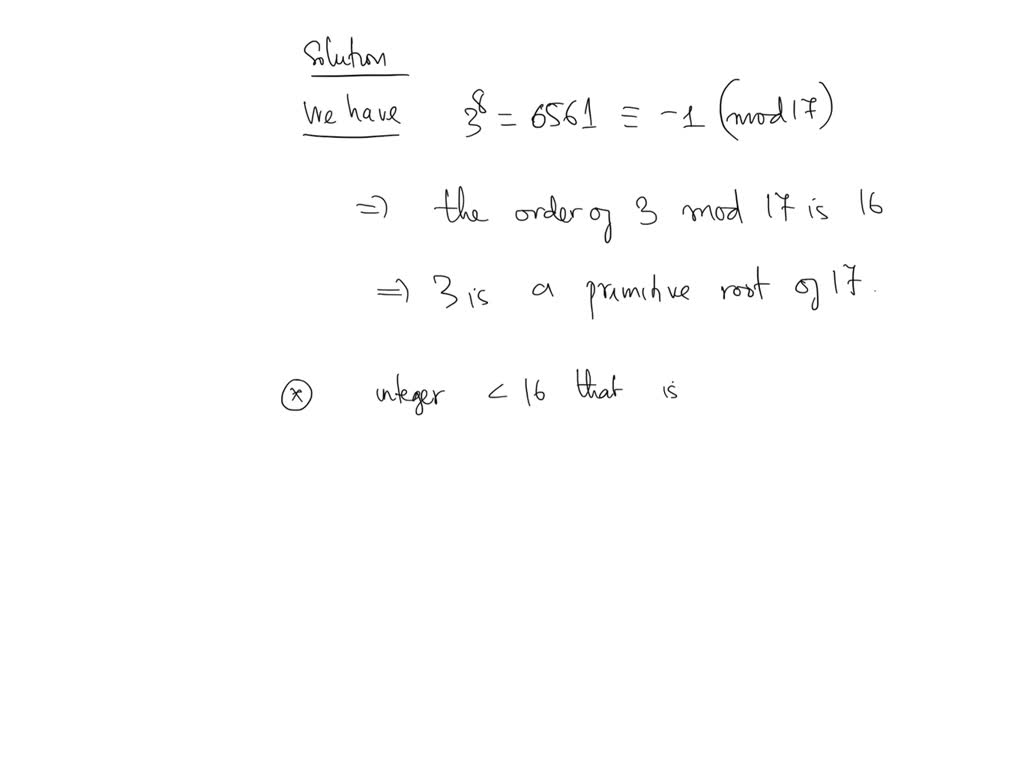 Solution
We have 3^8 = 6561 ≡ -1 (mod 17)
=> the order of 3 mod 17 is 16
=> 3 is a primitive root of 17.
(*) integer < 16 that is